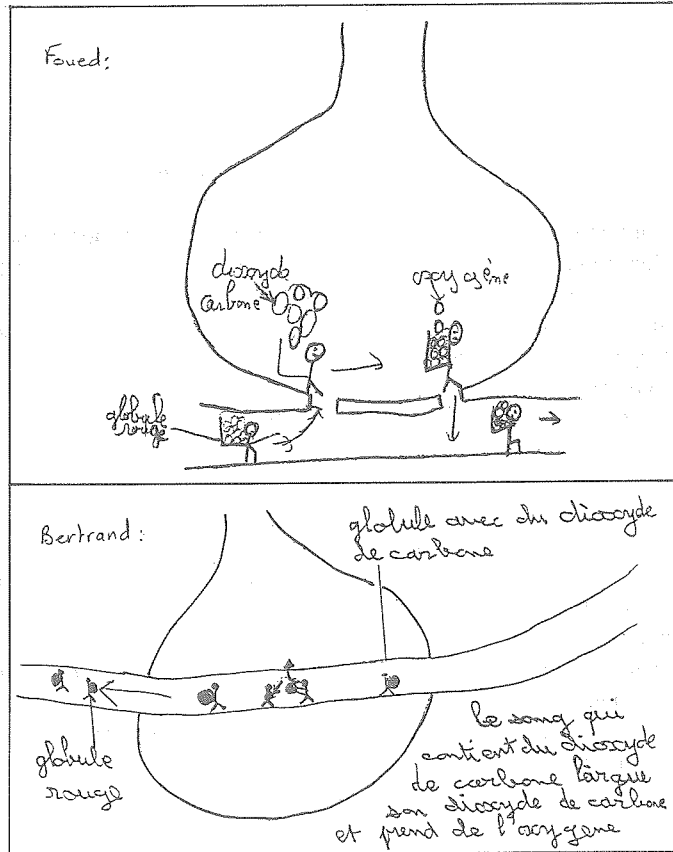 Foued:
dioxyde
carbone
oxygène
globule
rouge
Bertrand:
globule avec du dioxyde
de carbone
globule
rouge
le sang qui
contient du dioxyde
de carbone largue
son dioxyde de carbone
et prend de l'oxygene